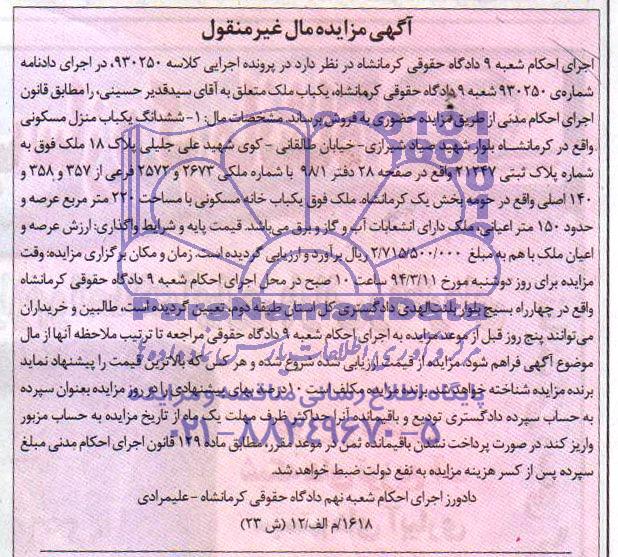 آگهی مزایده مال غیر منقول
اجرای احکام شعبه ۹ دادگاه حقوقی کرمانشاه در نظر دارد در پرونده اجرایی کلاسه ۹۳۰۲۵۰، در اجرای دادنامه
شماره‌ی ۹۳۰۲۵۰ شعبه ۹ دادگاه حقوقی کرمانشاه، یکباب ملک متعلق به آقای سیدقدیر حسینی، را مطابق قانون
اجرای احکام مدنی از طریق مزایده حضوری به فروش برساند. مشخصات مال: ۱- ششدانگ یکباب منزل مسکونی
واقع در کرمانشاه بلوار شهید صیاد شیرازی- خیابان طالقانی - کوی شهید علی جلیلی پلاک ۱۸ ملک فوق به
شماره پلاک ثبتی ۲۱۲۴۷ واقع در صفحه ۲۸ دفتر ۹۸/۱ با شماره ملکی ۲۶۷۳ و ۲۵۷۲ فرعی از ۳۵۷ و ۳۵۸ و
۱۴۰ اصلی واقع در حومه بخش یک کرمانشاه. ملک فوق یکباب خانه مسکونی با مساحت ۲۲۰ متر مربع عرصه و
حدود ۱۵۰ متر اعیانی، ملک دارای انشعابات آب و گاز و برق می‌باشد. قیمت پایه و شرایط واگذاری: ارزش عرصه و
اعیان ملک با هم به مبلغ ۲/۷۱۵/۵۰۰/۰۰۰ ریال برآورد و ارزیابی گردیده است. زمان و مکان برگزاری مزایده: وقت
مزایده برای روز دوشنبه مورخ ۹۴/۳/۱۱ ساعت ۱۰ صبح در محل اجرای احکام شعبه ۹ دادگاه حقوقی کرمانشاه
واقع در چهارراه بسیج بلوار بنت‌الهدی دادگستری کل استان طبقه دوم، تعیین گردیده است، طالبین و خریداران
می‌توانند پنج روز قبل از موعد مزایده به اجرای احکام شعبه ۹ دادگاه حقوقی مراجعه تا ترتیب ملاحظه آنها از مال
موضوع آگهی فراهم شود، مزایده از قیمت ارزیابی شده شروع شده و هر کس که بالاترین قیمت را پیشنهاد نماید
برنده مزایده شناخته خواهد شد، برنده مزایده مکلف است ۱۰ درصد بهای پیشنهادی را در روز مزایده بعنوان سپرده
به حساب سپرده دادگستری تودیع و باقیمانده آنرا حداکثر ظرف مهلت یک ماه از تاریخ مزایده به حساب مزبور
واریز کند، در صورت پرداخت نشدن باقیمانده ثمن در موعد مقرر، مطابق ماده ۱۲۹ قانون اجرای احکام مدنی مبلغ
سپرده پس از کسر هزینه مزایده به نفع دولت ضبط خواهد شد.
دادورز اجرای احکام شعبه نهم دادگاه حقوقی کرمانشاه - علیمرادی
۱۶۱۸/م الف/۱۲ (ش ۲۳)
پایگاه اطلاع رسانی مناقصه و مزایده
۰۲۱-۸۸۳۴۹۶۷۰-۵